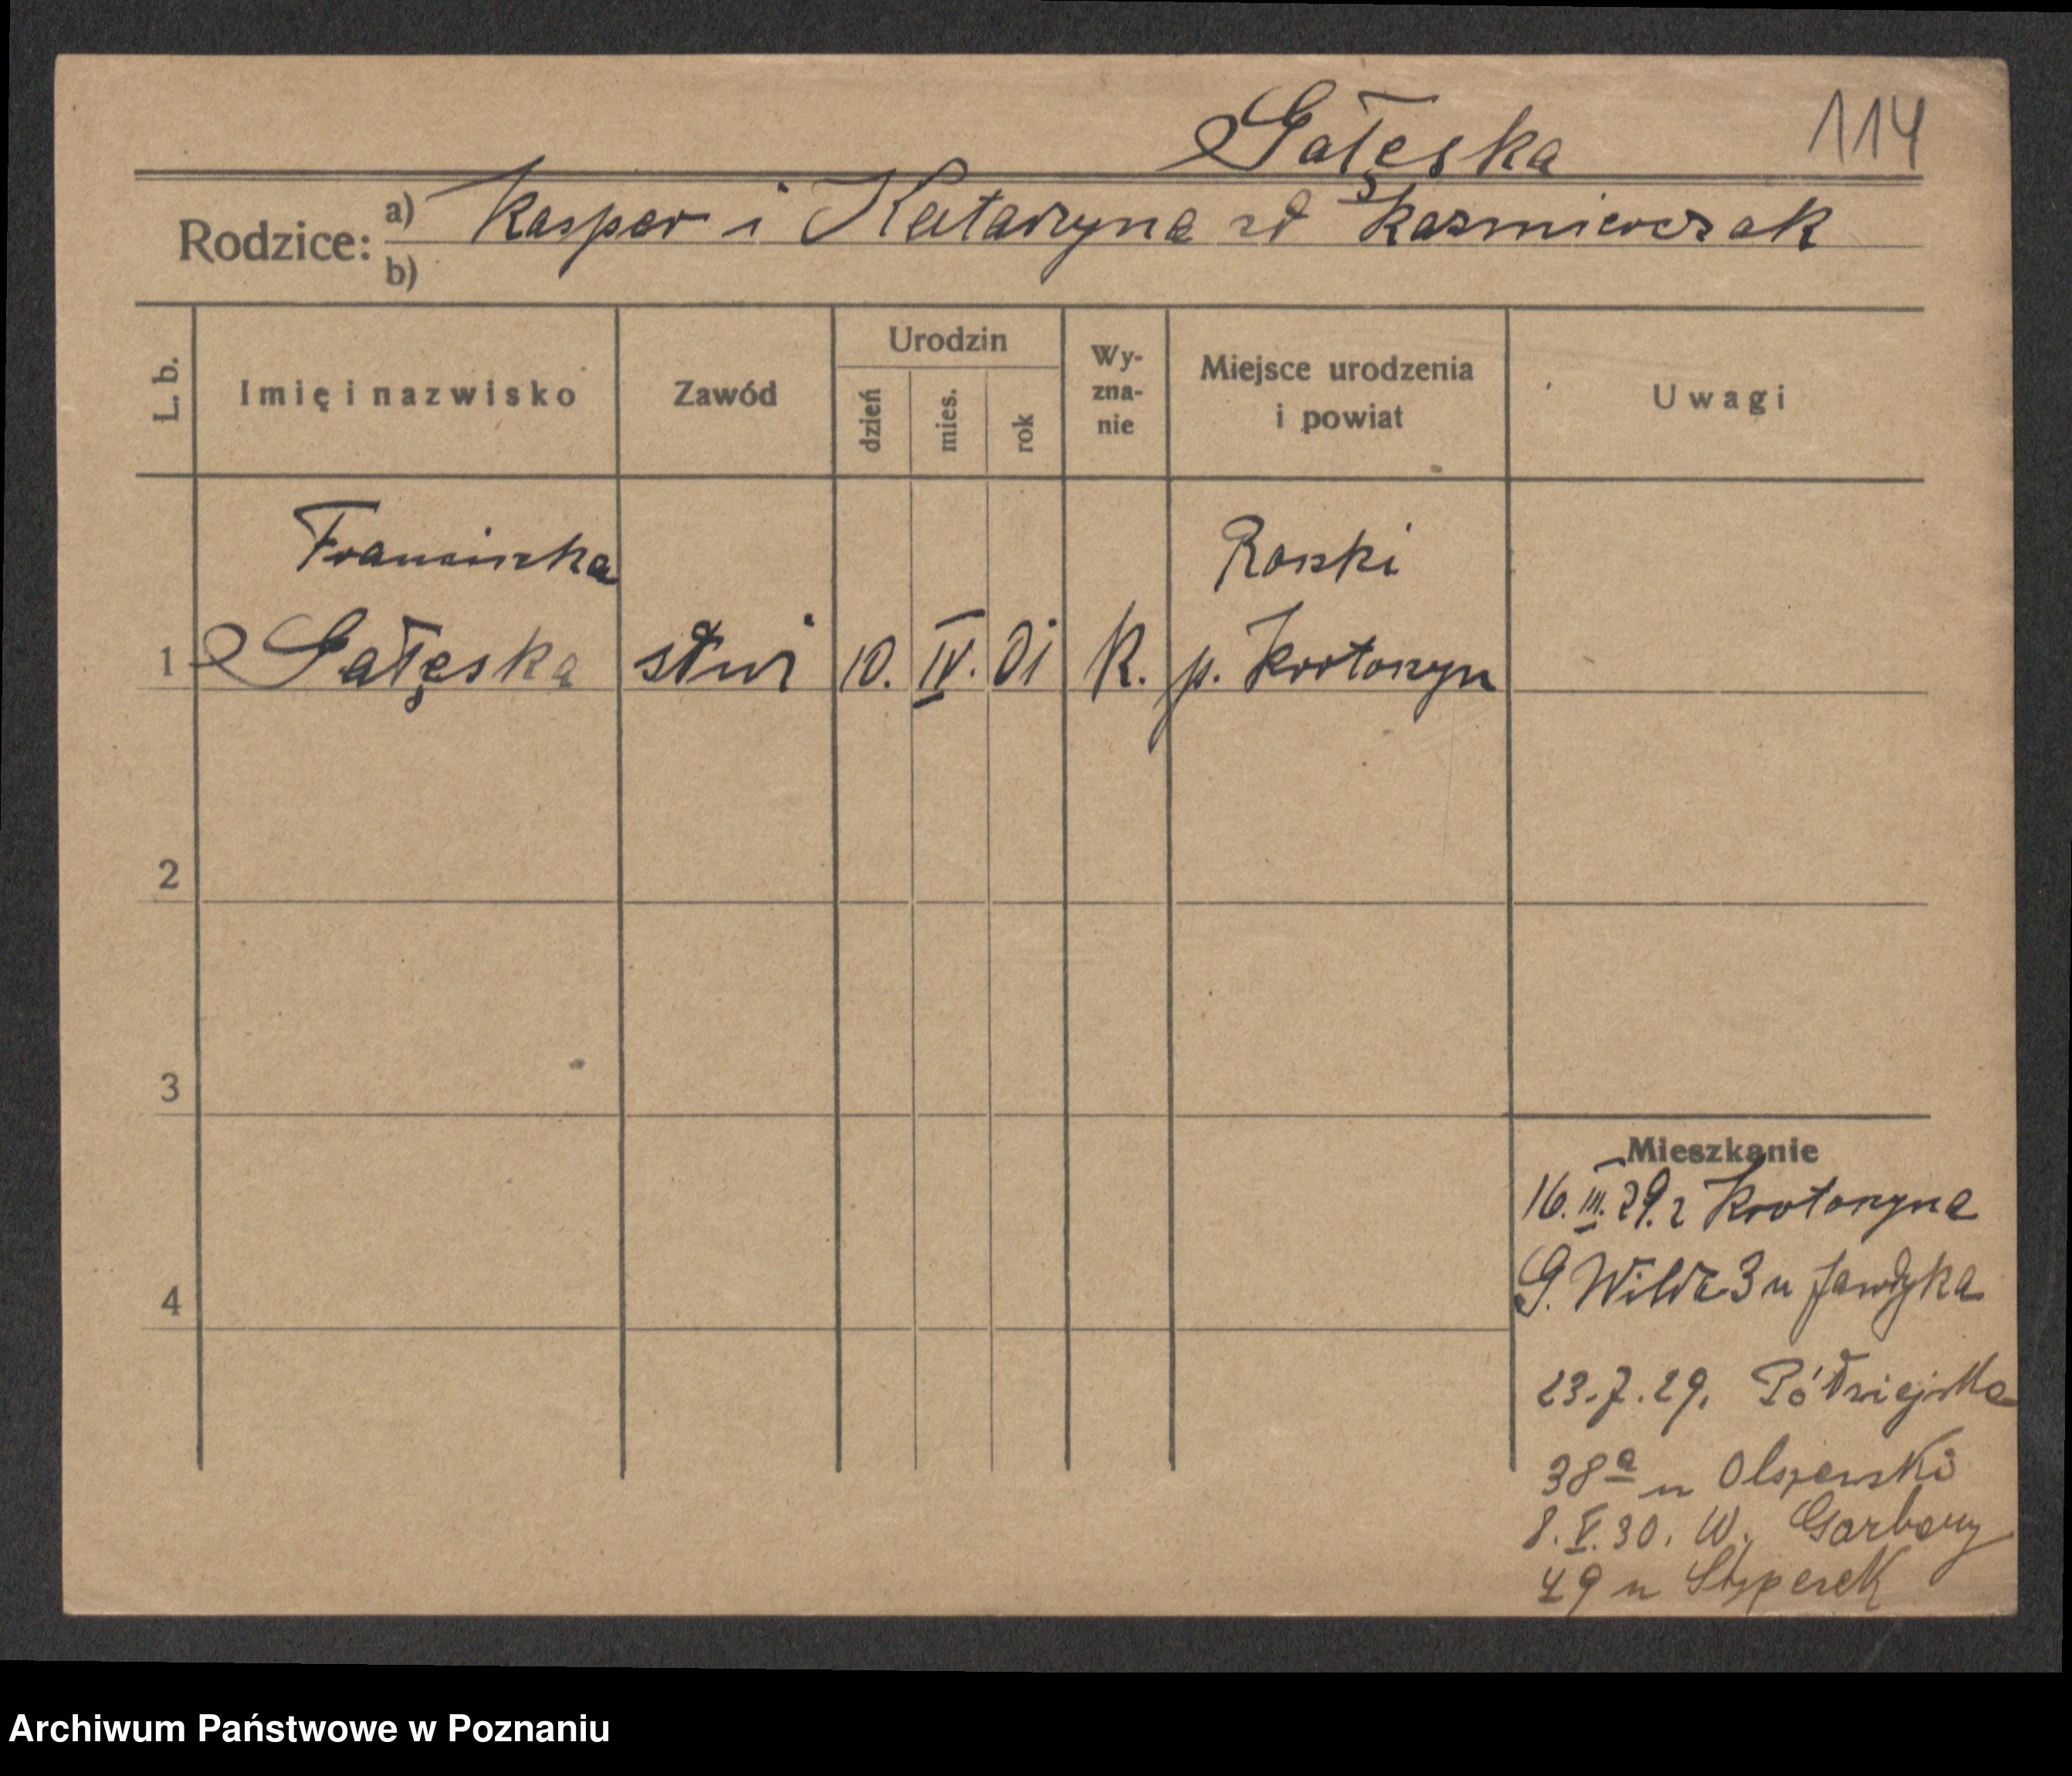 Gałeska 114
Rodzice: a) Kasper i Katarzyna zd Kazmierczak
b)
L. b. Imię i nazwisko Zawód Urodzin dzień mies. rok Wyznanie Miejsce urodzenia i powiat Uwagi
Franciszka Roszki
1 Gałęska służ 10. IV. 01 K. p. Krotoszyn
2
3
Mieszkanie
16. III. 29. z Krotoszyna
4 G. Wilda 3 u
23.7.29. Półwiejska
38a u Olszewski
8. V. 30. W. Garbary
49 u
Archiwum Państwowe w Poznaniu